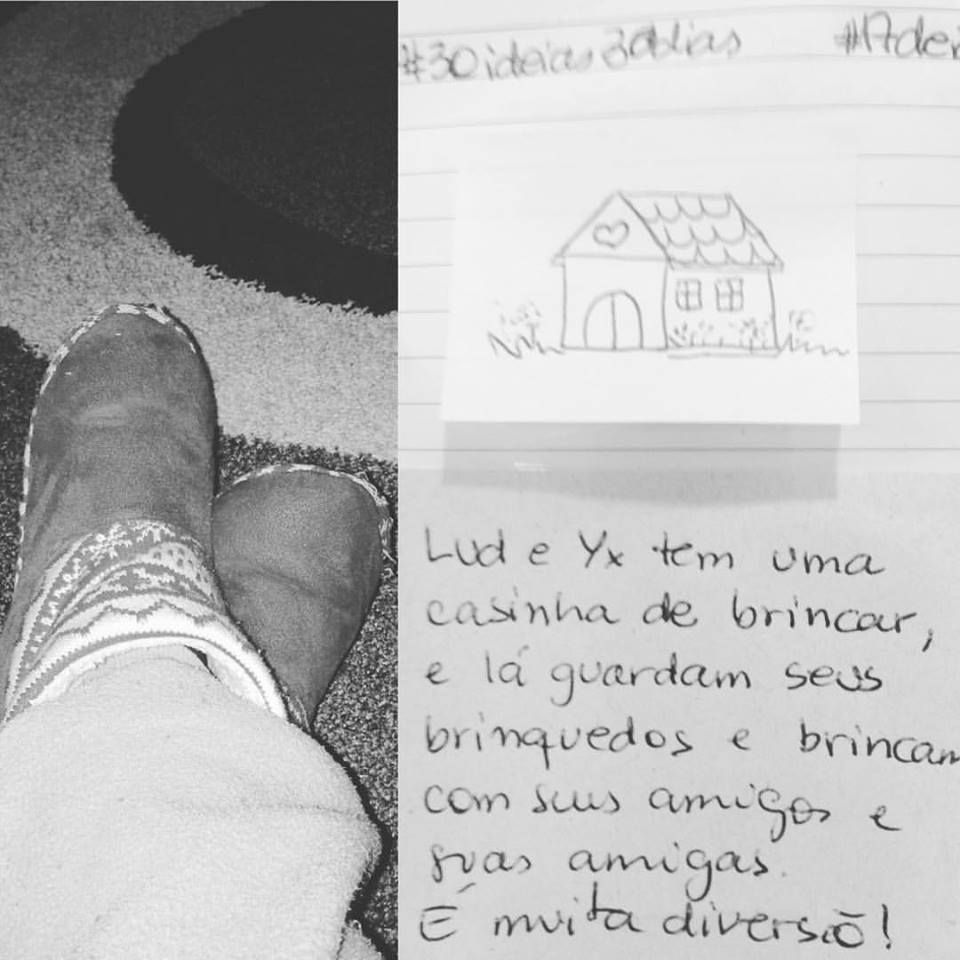 #30ideias30dias #17de
Lud e Yx tem uma
casinha de brincar,
e lá guardam seus
brinquedos e brincam
com seus amigos e
suas amigas.
É muita diversão!